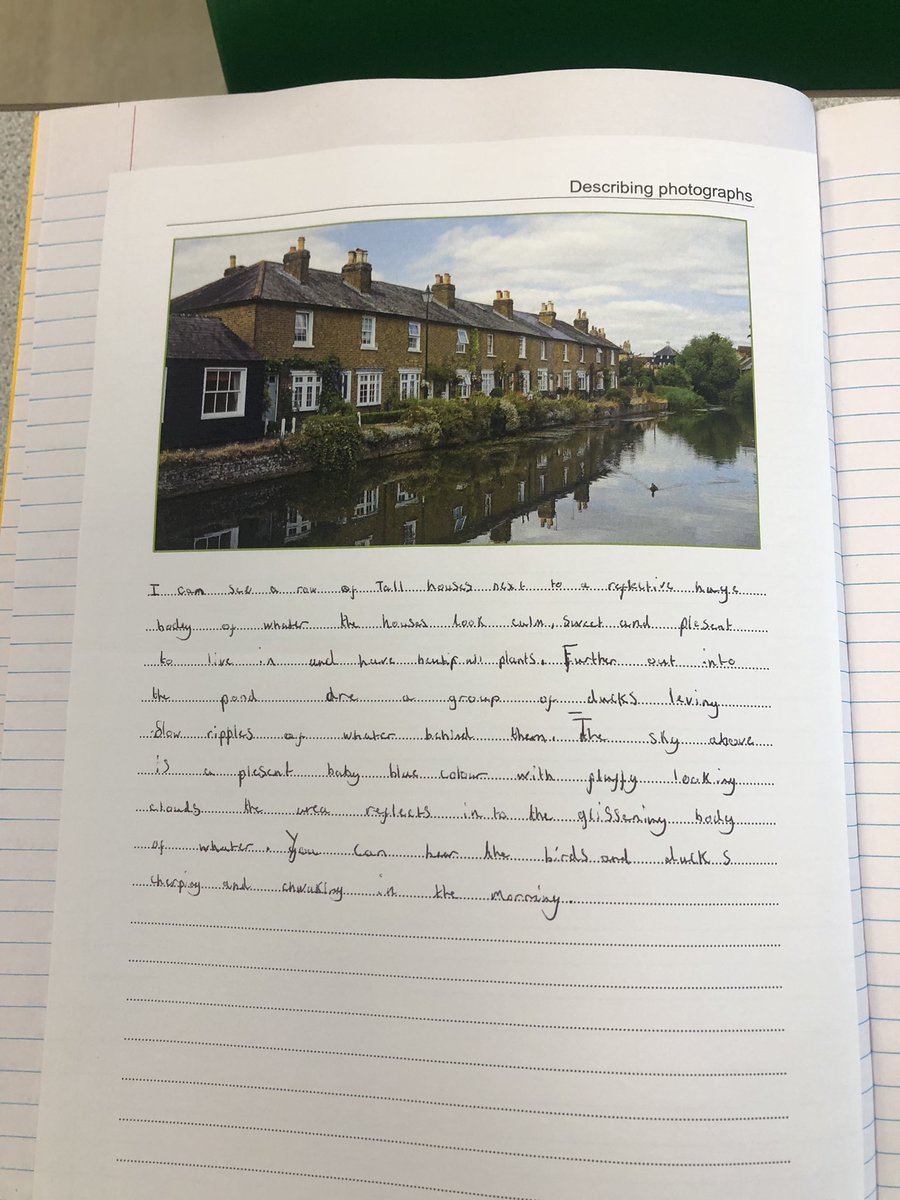 Describing photographs
I can see a row of Tall houses next to a reflective huge
badey of whater the houses look culm, Sweet and plesent
to live in and have plants. Further out into
the pond are a group of ducks leving
Slow ripples of whater behind them. The sky above
is a plesent baby blue colour with fluffy looking
clouds the urea reflects in to the glissening body
of whater. You can hear the birds and duck s
cherping and chwaking in the morning.